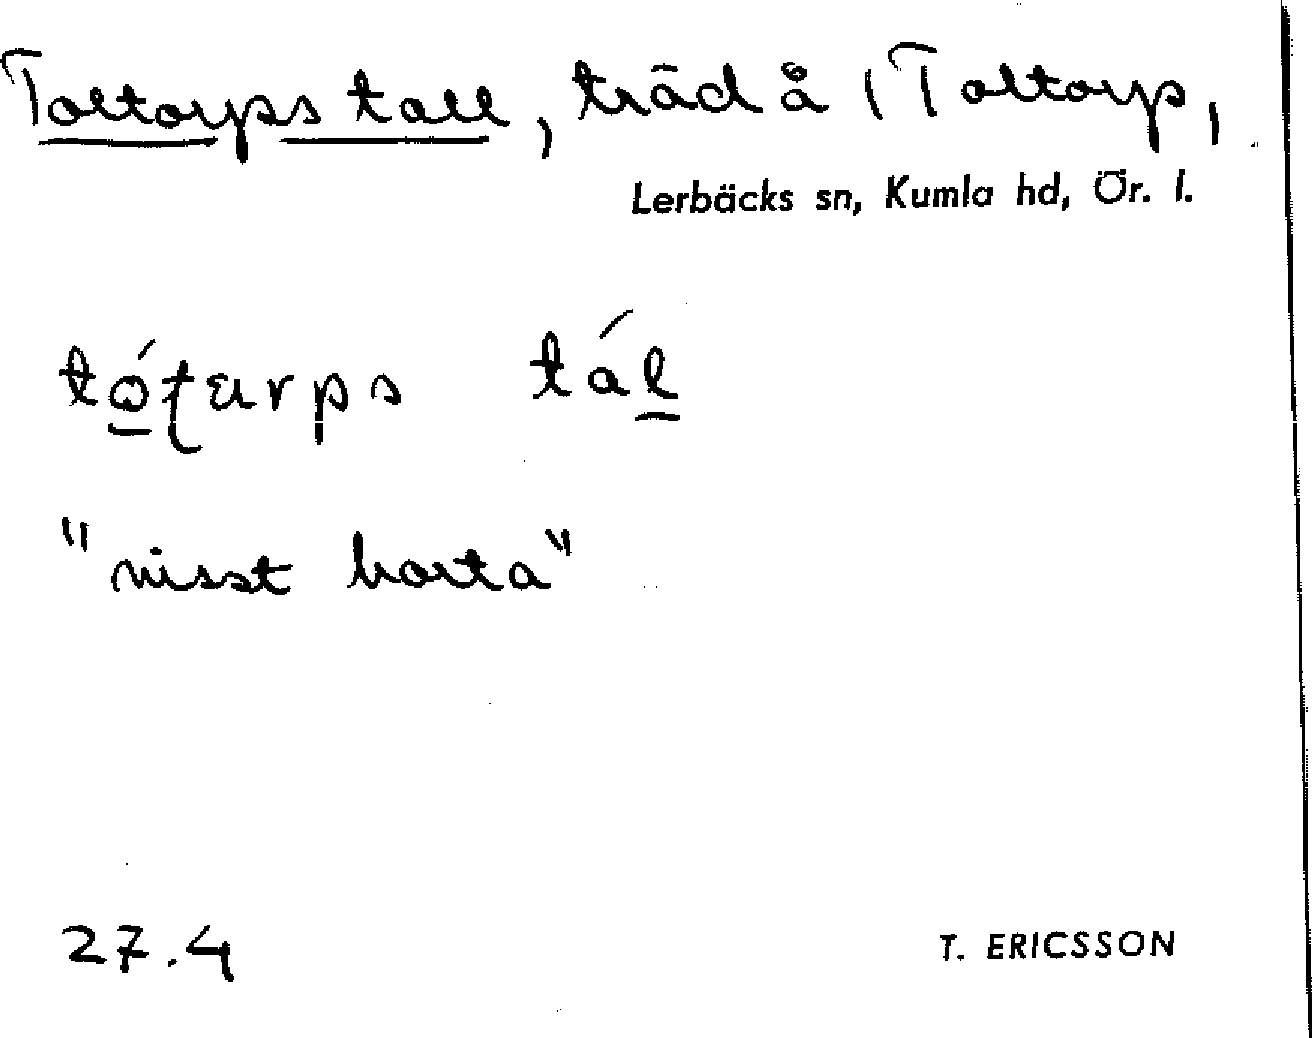 Toltorps tall, träd å 1 Toltorp,
Lerbäcks sn, Kumla hd, Ör. l.
"nisst borta"
27.4
T. ERICSSON